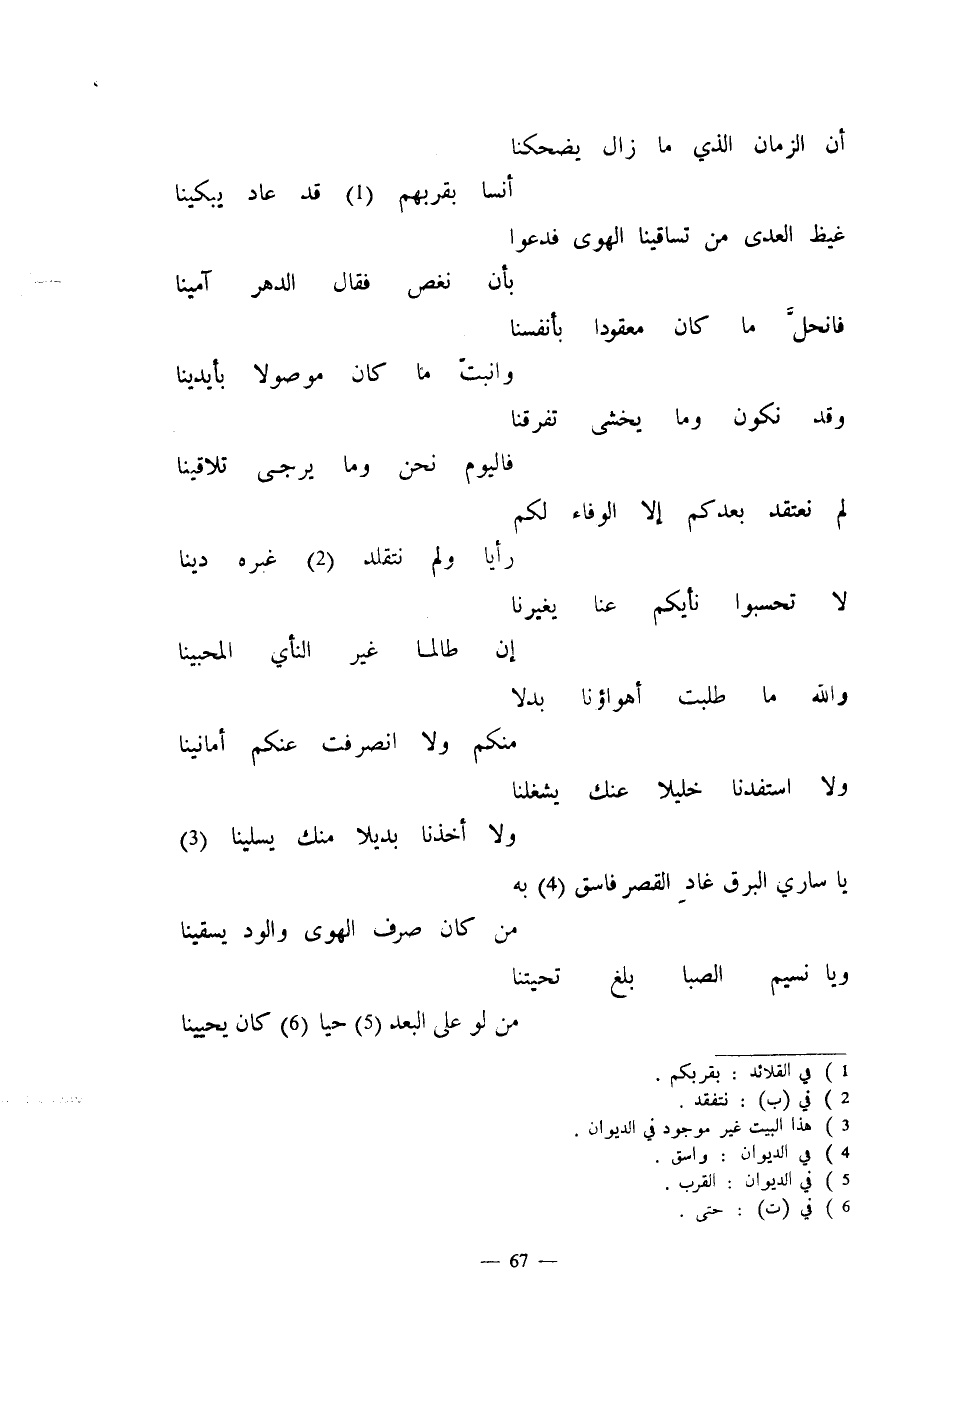 أن الزمان الذي ما زال يضحكنا
أنسا بقربهم (1) قد عاد يبكينا
غيظ العدى من تساقينا الهوى فدعوا
بأن نغص فقال الدهر آمينا
فانحلَّ ما كان معقودا بأنفسنا
وانبتّ ما كان موصولا بأيدينا
وقد نكون وما يخشى تفرقنا
فاليوم نحن وما يرجى تلاقينا
لم نعتقد بعدكم إلا الوفاء لكم
رأيا ولم نتقلد (2) غيره دينا
لا تحسبوا نأيكم عنا يغيرنا
إن طالما غير النأي المحبينا
والله ما طلبت أهواؤنا بدلا
منكم ولا انصرفت عنكم أمانينا
ولا استفدنا خليلا عنك يشغلنا
ولا أخذنا بديلا منك يسلينا (3)
يا ساري البرق غادِ القصر فاسق (4) به
من كان صرف الهوى والود يسقينا
ويا نسيم الصبا بلغ تحيتنا
من لو على البعد (5) حيا (6) كان يحيينا
1 ) في القلائد : بقربكم .
2 ) في (ب) : نتفقد .
3 ) هذا البيت غير موجود في الديوان .
4 ) في الديوان : واسق .
5 ) في الديوان : القرب .
6 ) في (ت) : حتى .
— 67 —